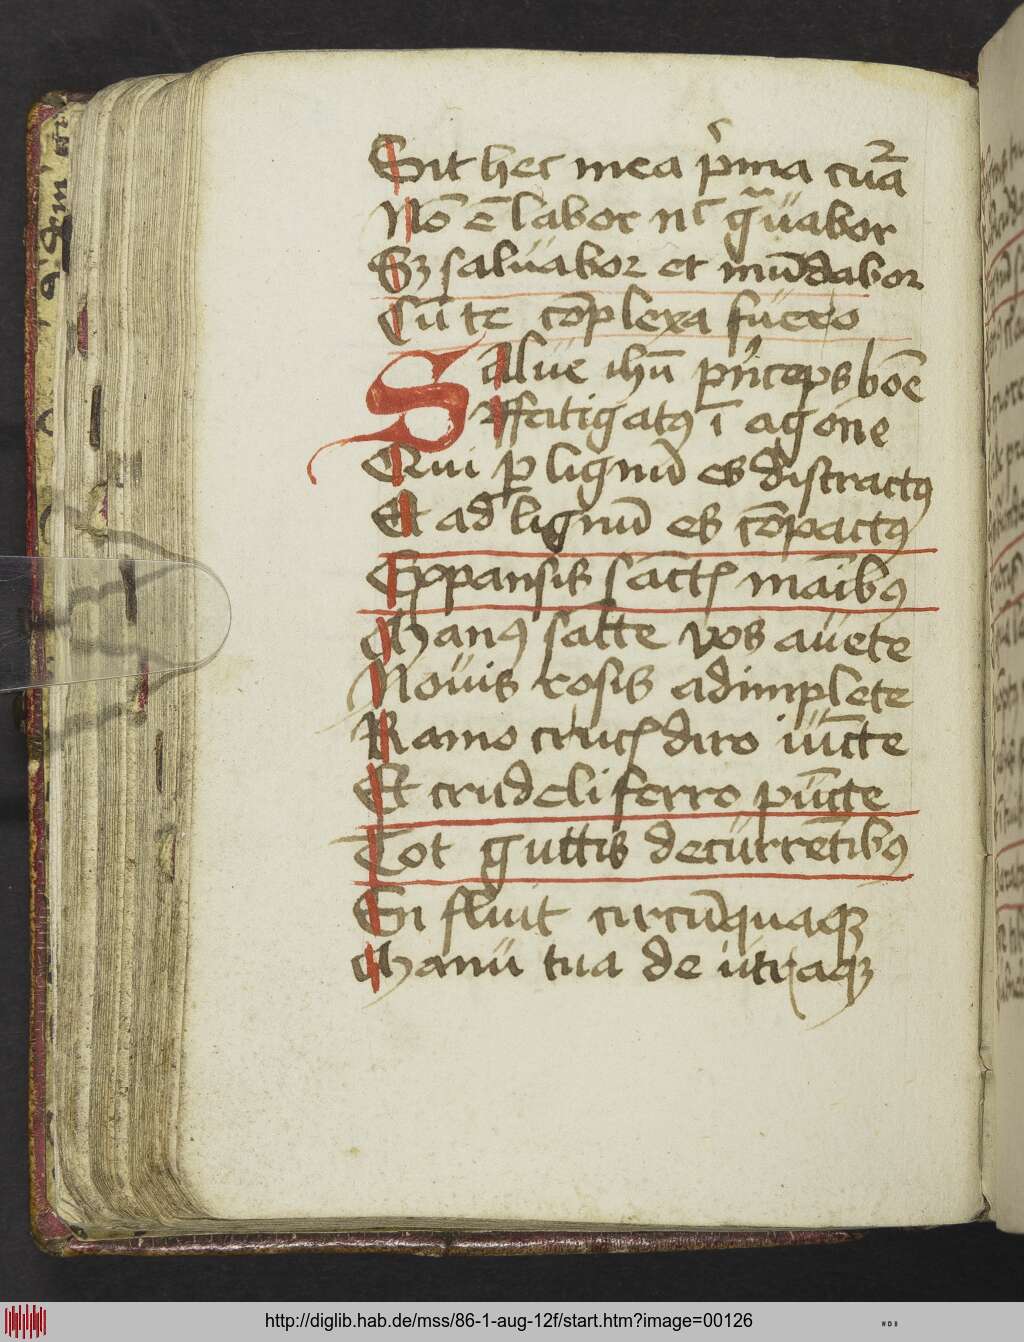 Sit hec mea pͥma cuꝝa
No᷑ ē labor nͨ gͣuabor
Sꝫ saluabor et mūdabor
Cū te cōplexa fuero
Salue ihū pͥnceps bōe
Affatigatꝰ ī agone
Qui ꝑ lignū es distractꝰ
Et ad lignū es cōpactꝰ
Expansis sāctꝭ māibꝰ
Manꝰ sācte vos auete
Nouis rosis adimplete
Ramo crucꝭ diro iūcte
Et crudeli ferro pūcte
Tot guttis decurrētibꝰ
En fluit circūquaqꝫ
Manu tua de utͣqꝫ
http://diglib.hab.de/mss/86-1-aug-12f/start.htm?image=00126